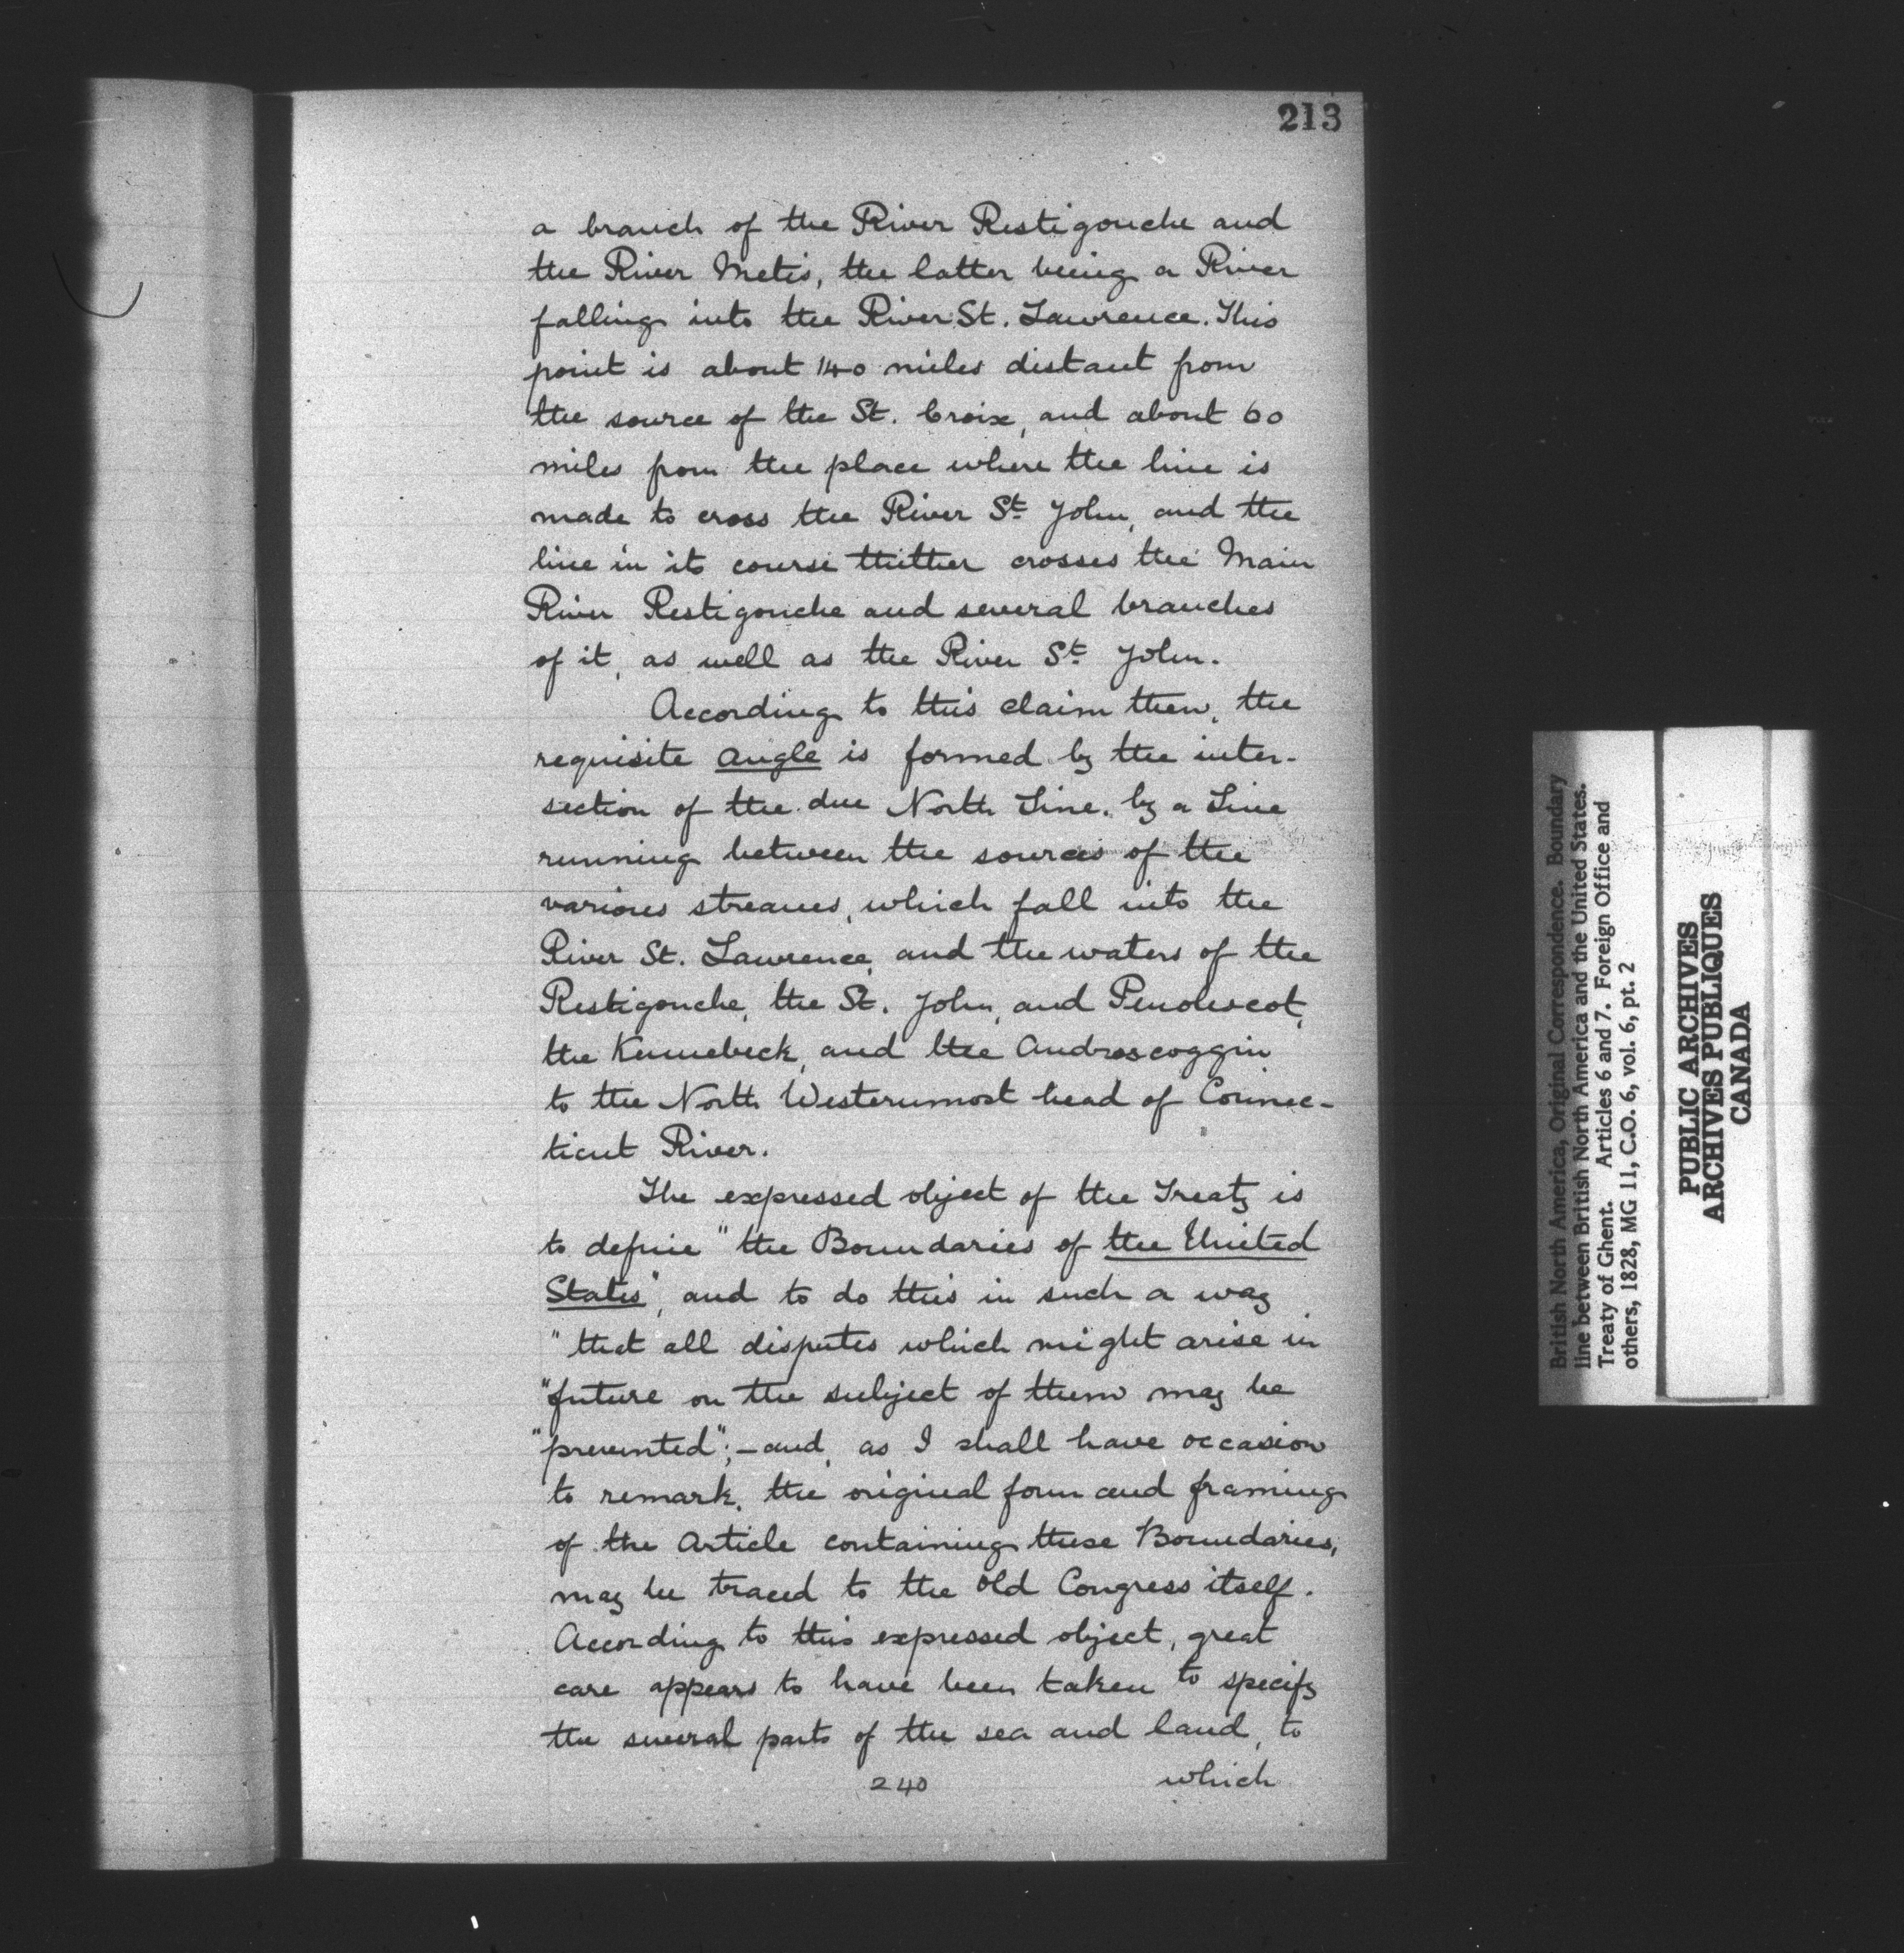 213
a branch of the River Restigouche and
the River Metis, the latter being a River
falling into the River St. Lawrence. This
point is about 140 miles distant from
the source of the St. Croix, and about 60
miles from the place where the line is
made to cross the River St. John, and the
line in its course thither crosses the Main
River Restigouche and several branches
of it, as well as the River St. John.
According to this claim then, the
requisite Angle is formed by the inter-
section of the due North Line, by a Line
running between the sources of the
various streams, which fall into the
River St. Lawrence, and the waters of the
Restigouche, the St. John, and Penobscot,
the Kennebeck, and the Androscoggin
to the North Westernmost head of Connec-
ticut River.
The expressed object of the Treaty is
to define "the Boundaries of the United
States", and to do this in such a way
"that all disputes which might arise in
"future on the subject of them may be
"prevented"; - and, as I shall have occasion
to remark, the original form and framing
of the Article containing these Boundaries,
may be traced to the Old Congress itself.
According to this expressed object, great
care appears to have been taken to specify
the several parts of the sea and land, to
240 which
British North America, Original Correspondence. Boundary
line between British North America and the United States.
Treaty of Ghent. Articles 6 and 7. Foreign Office and
others, 1828, MG 11, C.O. 6, vol. 6, pt. 2
PUBLIC ARCHIVES
ARCHIVES PUBLIQUES
CANADA